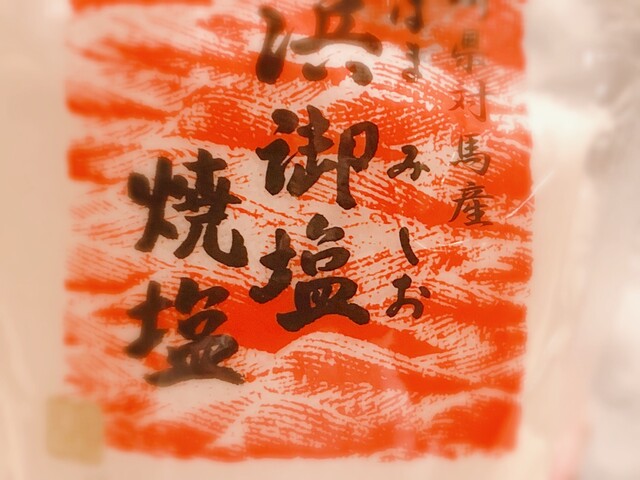 県対馬産
はま みしお
浜御塩
焼塩